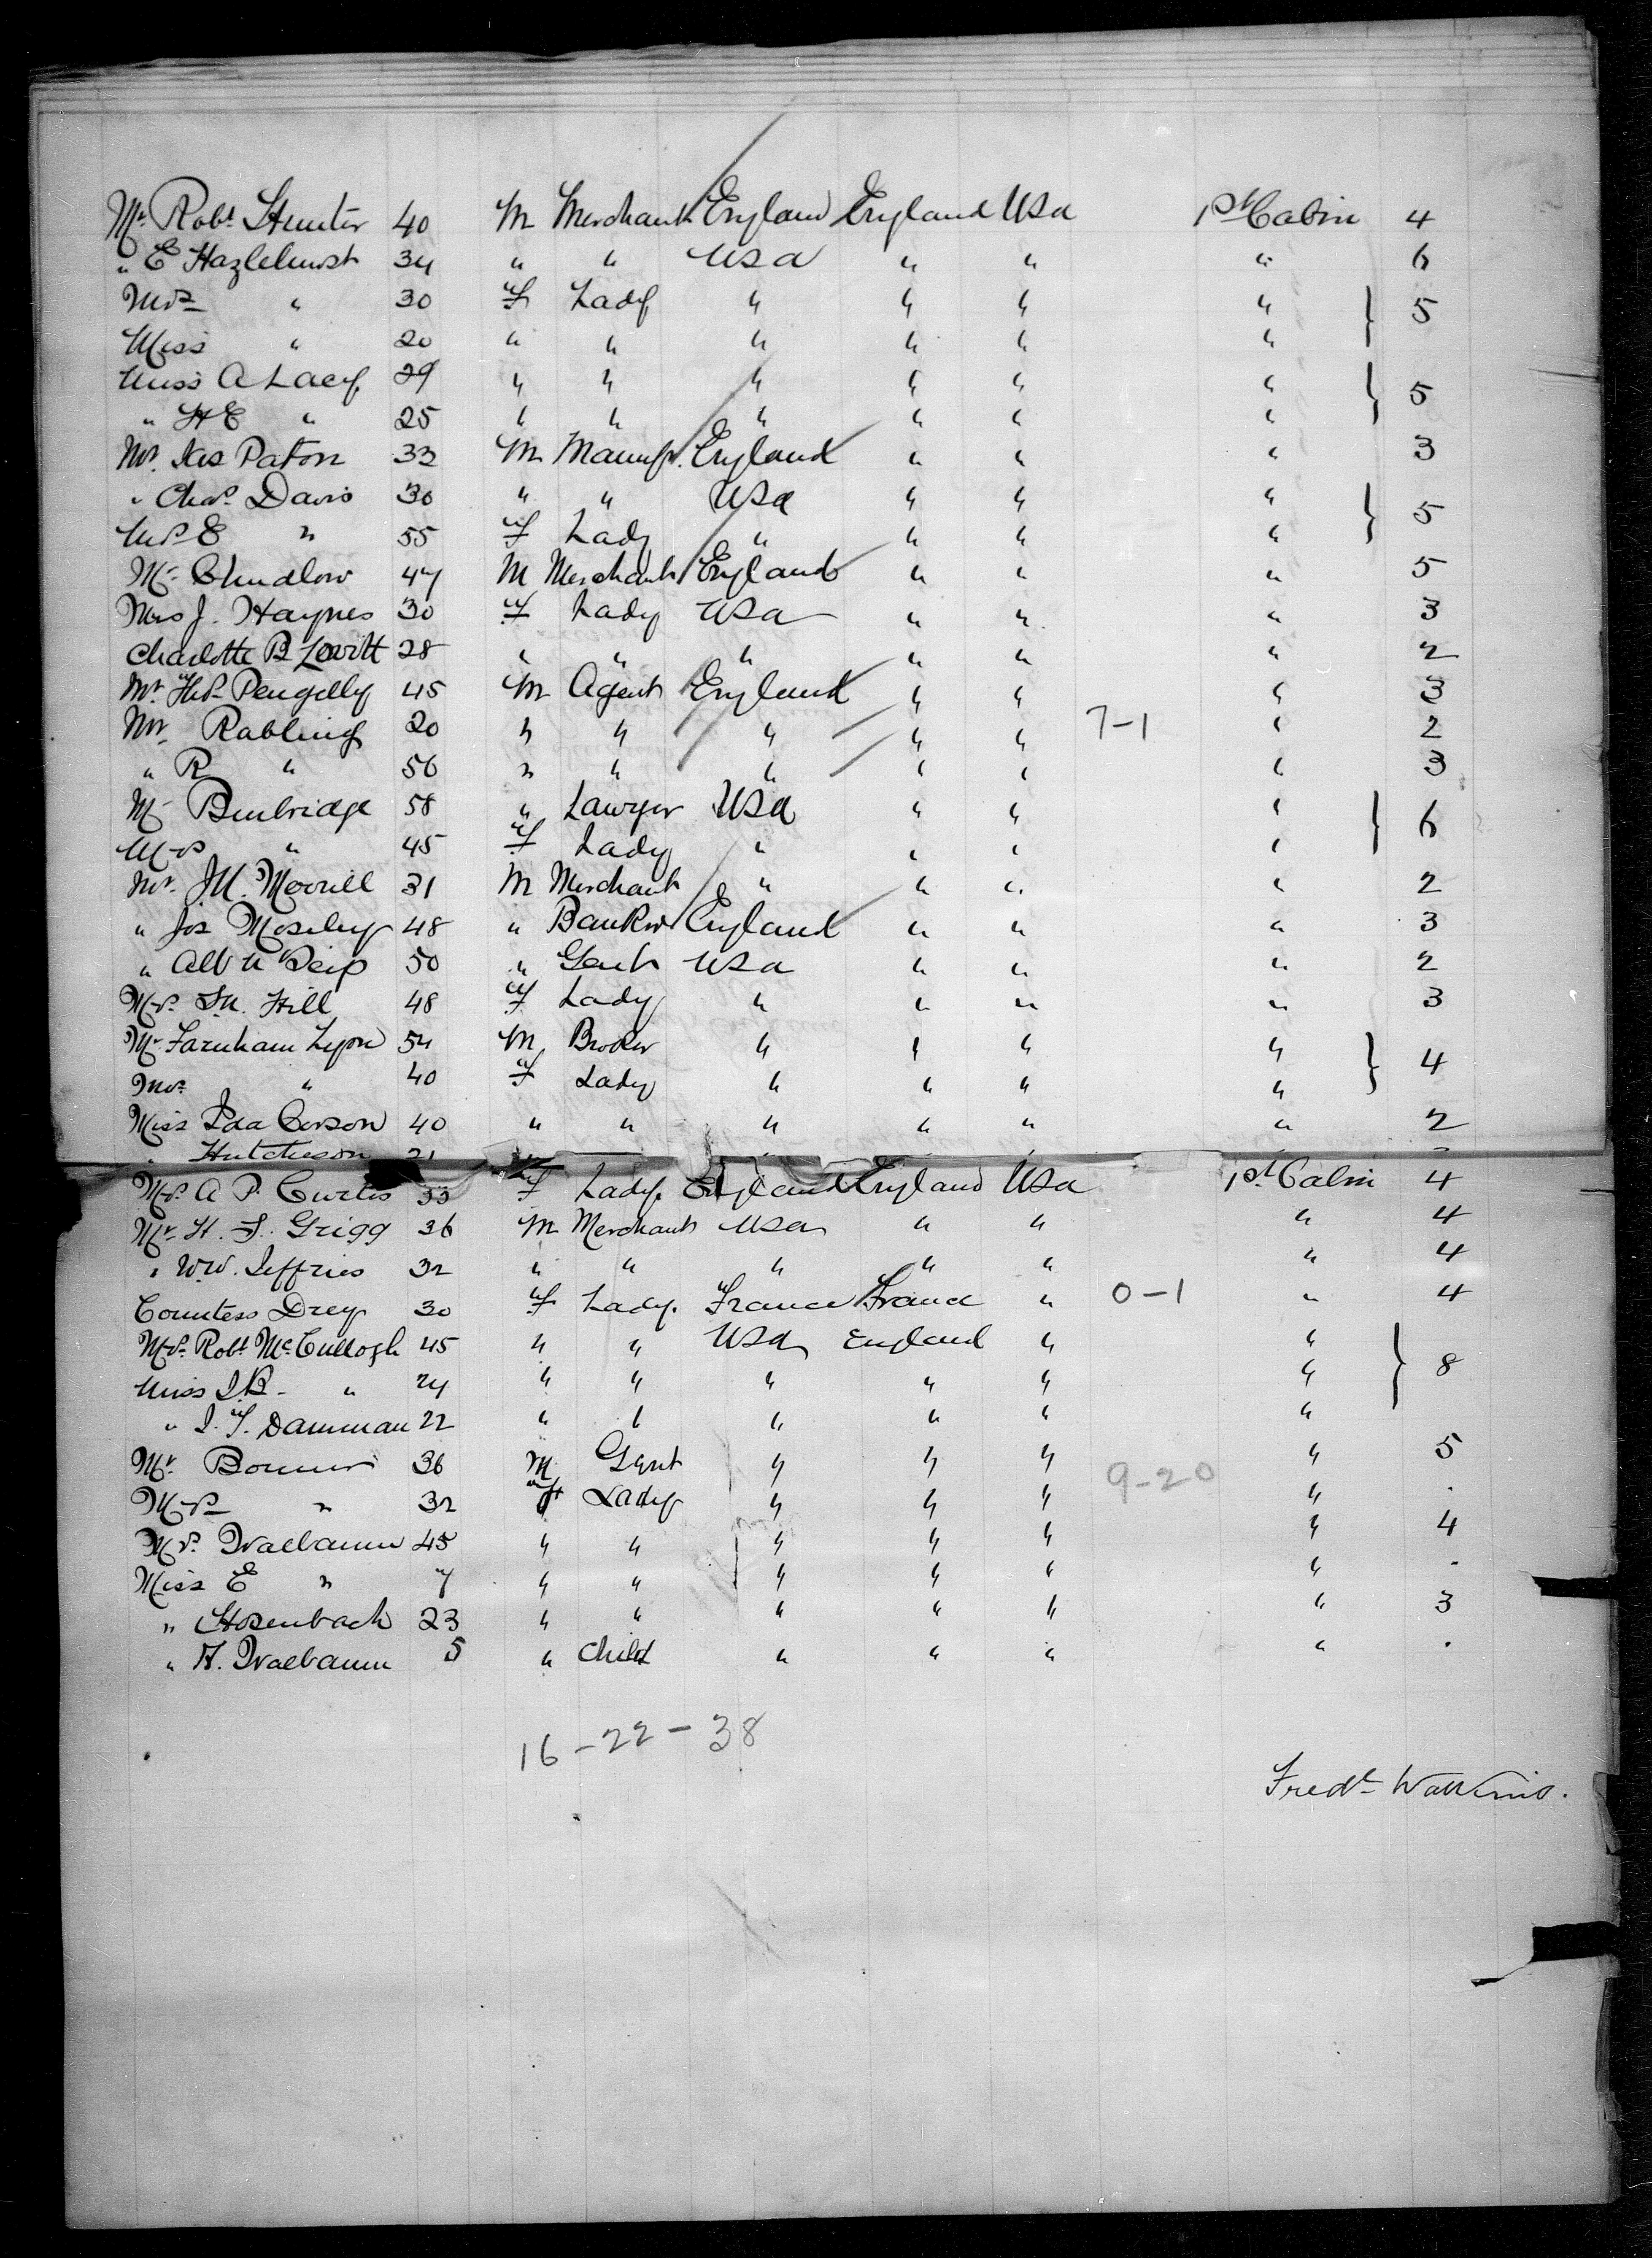 Mr Robt Hunter 40 M Merchant England England USA 1st Cabin 4
" E Hazlehurst 34 " " USA " " " 6
Mrs " 30 F Lady " " " " } 5
Miss " 20 " " " " " "
Miss A Lacy 29 " " " " " " } 5
" H E " 25 " " " " " "
Mr. Jas Paton 33 M Manufr. England " " " 3
" Chas. Davis 30 " " USA " " " } 5
Mrs E " 55 F Lady " " " "
Mr Chudlow 47 M Merchant England " " " 5
Mrs J. Haynes 30 F Lady USA " " " 3
Charlotte B Lewitt 28 " " " " " " 2
Mr. Ths Pengelly 45 M Agent England " " " 3
Mr. Rabling 20 " " " " " 7-1 " 2
" R " 56 " " " " " " 3
Mr Benbridge 58 " Lawyer USA " " " } 6
Mrs " 45 F Lady " " " "
Mr. J.M. Morrill 31 M Merchant " " " " 2
" Jos Moseley 48 " Banker England " " " 3
" Alb N 50 " Gent USA " " " 2
Mrs. Hill 48 F Lady " " " " 3
Mr Farnham Lyon 54 M Broker " " " " } 4
Mrs " 40 F Lady " " " "
Miss Ida Corson 40 " " " " " " 2
" Hutcheson 21
Mrs. A P. Curtis 55 F Lady. England England USA 1st Cabin 4
Mr H. S. Grigg 36 M Merchant USA " " " 4
" W.W. Jeffries 32 " " " " " " 4
Countess Drey 30 F Lady. France France " 0-1 " 4
Mrs. Robt McCullogh 45 " " USA England " " } 8
Miss I.B. " 24 " " " " " "
" I. F. Damman 22 " " " " " "
Mr. Bonner 36 M Gent " " " 9-20 " 5
Mrs " 32 F Lady " " " " .
Mrs. Walbaum 45 " " " " " " 4
Miss E " 7 " " " " " " .
" Hosenbach 23 " " " " " " 3
" H. Walbaum 5 " Child " " " " .
16-22-38
Fredk Watkins.